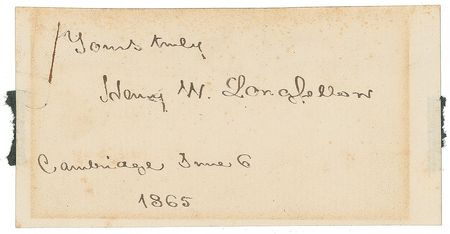 Yours truly
Henry W. Longfellow
Cambridge June 6
1865